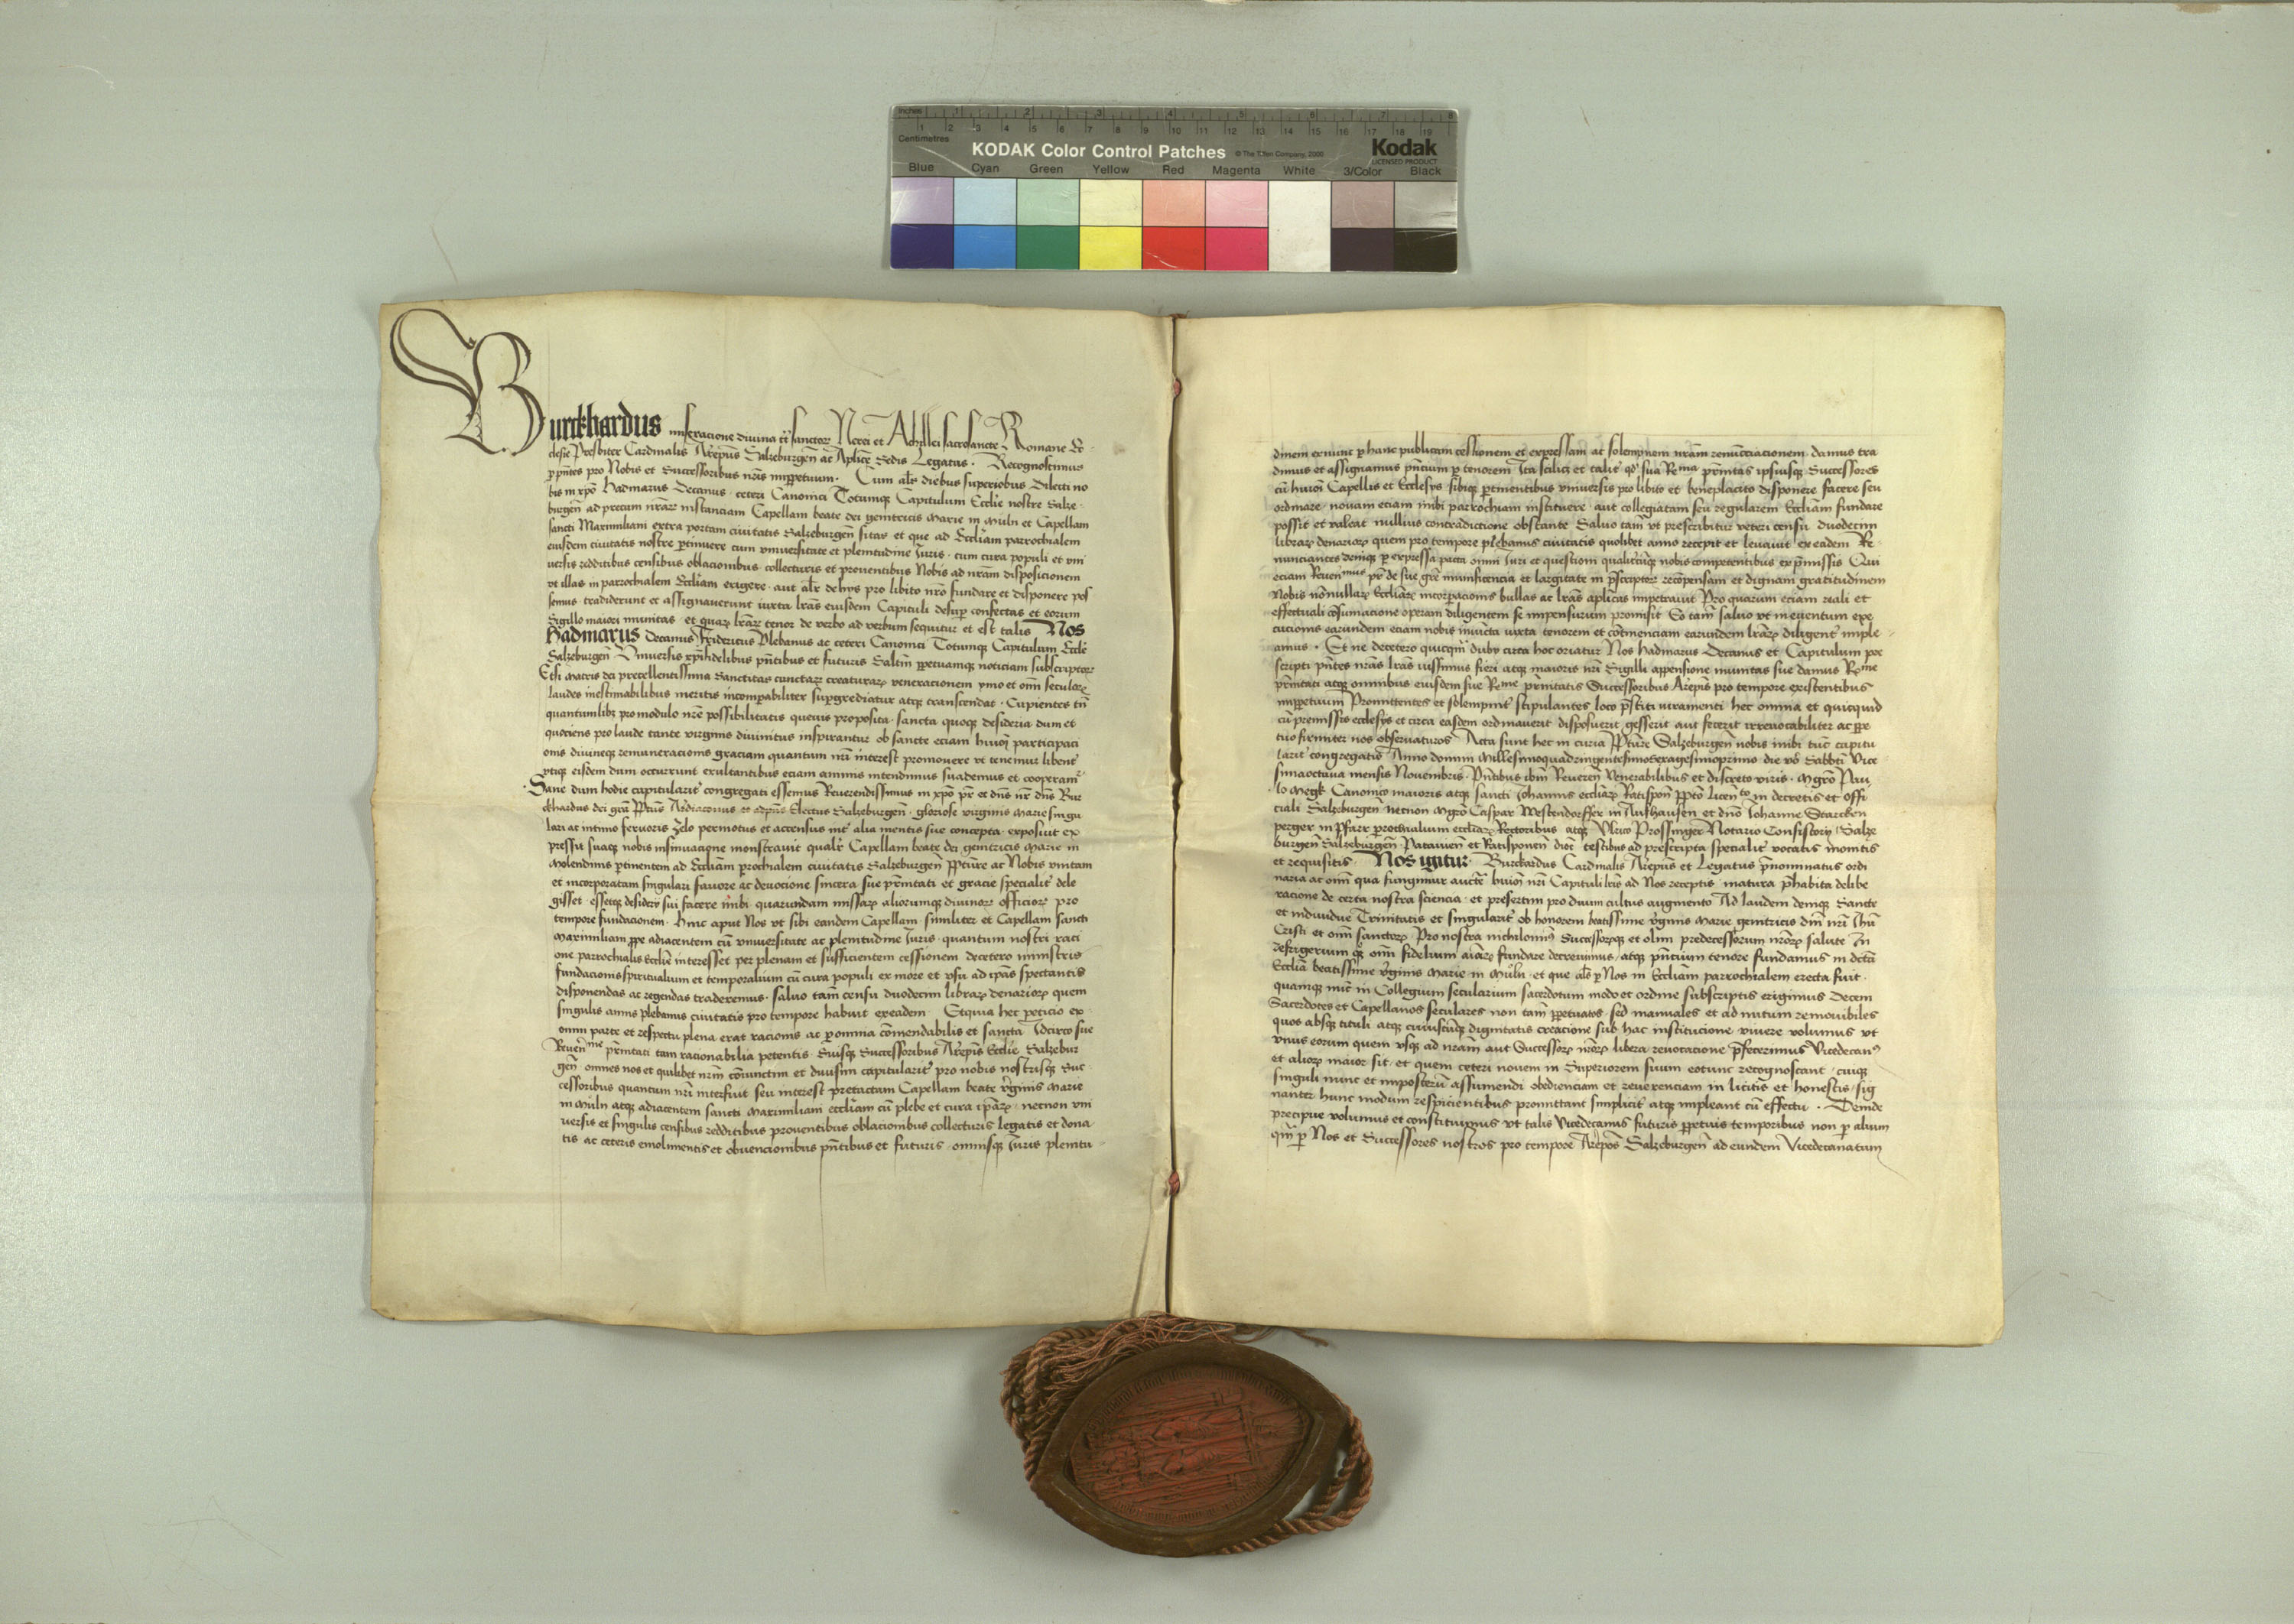 Inches 1 2 3 4 5 6 7 8
1 2 3 4 5 6 7 8 9 10 11 12 13 14 15 16 17 18 19
Centimetres
KODAK Color Control Patches © The Tiffen Company, 2000 Kodak
LICENSED PRODUCT
Blue Cyan Green Yellow Red Magenta White 3/Color Black
Burckhardus miseracione divina tt sanctor Nerei et Achillei sacrosancte Romane Ec-
clesie Presbiter Cardinalis Arepus Salzeburgen ac Aplice Sedis Legatus · Recognoscimus
p pntes pro Nobis et Successoribus nris imppetuum · Cum alr diebus superiobus Dilecti no
bis in xpo Hadmarus Decanus ceteri Canonici Totumq Capitulum Ecclie nostre Salze
burgen ad precum nrar instanciam Capellam beate dei genitricis Marie in Muln et Capellam
sancti Maximiliani extra portam civitatis Salzeburgen sitas et que ad Eccliam parrochialem
eiusdem civitatis nostre ptinuere cum vniversitate et plenitudine Juris · cum cura populi et vni
versis redditibus censibus oblacionibus collecturis et proventibus Nobis ad nram disposicionem
vt illas in parrochialem Eccliam erigere · aut alr de hys pro libito nro fundare et disponere pos
semus · tradiderunt et assignaverunt iuxta lras eiusdem Capituli desup confectas et eorum
Sigillo maiori munitas et quar lrar tenor de verbo ad verbum sequitur et est talis Nos
Hadmarus Decanus Fridericus Plebanus ac ceteri Canonici Totumq Capitulum Eccle
Salzeburgen Vniversis xpifidelibus pntibus et futuris Saltim ppetuamq noticiam subscriptor
Etsi Matris dei precellentissima Sanctitas cunctar creaturar veneracionem ymo et omi secular
laudes inestimabilibus meritis incompabiliter supgrediatur atq transcendat · Cupientes tn
quantumlibz pro modulo nre possibilitatis quevis proposita · sancta quoq desideria dum et
quociens pro laude tante virginis divinitus inspirantur ob sancte eciam huioi participaci
onis divineq remuneracionis graciam quantum nri interest promovere vt tenemur libent
vtiq eisdem dum occurrunt exultantibus eciam animis intendimus suademus et cooperam
Sane dum hodie capitularit congregati essemus Reverendissimus in xpo pr et dns nr dns Bur
ckhardus dei gra Electus Salzeburgen · gloriose virginis Marie singu
lari ac intimo fervoris zelo permotus et accensus int alia mentis sue concepta · exposuit ex
pressit suaq nobis insinuacione monstravit qualr Capellam beate dei genitricis Marie in
Molendinis ptinentem ad Eccliam prochialem civitatis Salzeburgen ac Nobis vnitam
et incorporatam singulari favore ac devocione sincera sue prnitati et gracie specialit dele
gisset · essetq desidery sui facere inibi quarundam missar aliorumq divinor officior pro
tempore fundacionem · Hinc aput Nos vt sibi eandem Capellam · similiter et Capellam sancti
Maximiliani ppe adiacentem cu vniversitate ac plenitudine Juris · quantum nostri raci
one parrochialis Ecclie interesset per plenam et sufficientem cessionem decetero ministris
fundacionis spiritualium et temporalium cu cura populi ex more et vsu ad ipas spectantis
disponendas ac regendas traderemus · salvo tam censu duodecim librar denarior quem
singulis annis plebanus civitatis pro tempore habuit exeadem Et quia hec peticio ex
omni parte et respectu plena erat racionis ac p omnia comendabilis et sancta Idcirco sue
Reveren me prnitati tam racionabilia petentis Eiusq Successoribus Arepis Ecclie Salzebur
gen omnes nos et quilibet nrm coiunctim et divisim capitularit pro nobis nostrisq Suc
cessoribus quantum nri interfuit seu interest pretactam Capellam beate vginis Marie
in Muln atq adiacentem sancti Maximiliani eccliam cu plebe et cura ipar · necnon vni
versis et singulis censibus redditibus proventibus oblacionibus collecturis legatis et dona
tis ac ceteris emolimentis et obvencionibus pntibus et futuris · omnisq Juris plenitu
dinem exnunc p hanc publicam cessionem et expressam ac solempnem nram renucciacionem · damus tra
dimus et assignamus pntium p tenorem Ita scilicet et talit qd sua Rema prnitas ipsiusq Successores
cu huioi Capellis et Ecclesys sibiq ptinentibus vniversis pro libito et beneplacito disponere facere seu
ordinare · novam eciam inibi parrochiam instituere · aut collegiatam seu regularem Eccliam fundare
possit et valeat nullius contradictione obstante Salvo tam vt prescribitur veteri censu duodecim
librar denarior quem pro tempore plebanus civitatis quolibet anno recepit et levavit exeadem Re
nunciantes deniq p expressa pacta omni Juri et questioni qualicuq nobis competentibus ex pmissis Qui
eciam Reveren mus pr de sue gre munificencia et largitate in pscriptor recopensam et dignam gratitudinem
Nobis nonullar Eccliar incorpacionis bullas ac lras aplicas impetravit Pro quarum eciam reali et
effectuali cosumacione operam diligentem se impensurum promisit Eo tam salvo vt in eventum exe
cucionis earundem eciam nobis iniucta iuxta tenorem et cotinenciam earundem lrar diligent imple
amus · Et ne decetero quicqm duby circa hoc oriatur Nos Hadmarus Decanus et Capitulum pre
scripti pntes nras lras iussimus fieri atq maioris nri Sigilli appensione munitas sue damus Reme
prnitati atq omnibus eiusdem sue Reme prnitatis Successoribus Arepis pro tempore existentibus
imppetuum Promittentes et solempnit stipulantes loco pstiti iuramenti hec omnia et quicquid
cu premissis ecclesys et circa easdem ordinaverit disposuerit gesserit aut fecerit irrevocabiliter ac ppe
tuo firmiter nos observaturos Acta sunt hec in curia Salzeburgen nobis inibi tuc capitu
larit congregatis Anno domini Millesimoquadringentesimosexagesimoprimo die vo Sabbti Vice
simaoctava mensis Novembris · Pntibus ibm Reveren Venerabilibus et discreto viris · Mgro Pau
lo Megk Canonico maioris atq sancti Johannis eccliar Ratispon Licen to in decretis et offi
ciali Salzeburgen necnon Mgro Caspar Westendorffer in Aufhausen et dno Johanne Starcken
perger in Pfarr prochialium eccliar Rectoribus atq Vlrico Prossinger Notario Consistory Salze
burgen Salzeburgen Patavien et Ratisponen dioc testibus ad prescripta specialit vocatis monitis
et requisitis Nos igitur Burckardus Cardinalis Arepus et Legatus pnominatus ordi
naria ac omi qua fungimur aucte huioi nri Capituli lris ad Nos receptis · matura phabita delibe
racione de certa nostra sciencia et presertim pro divini cultus augmento Ad laudem deniq Sancte
et individue Trinitatis et singularit ob honorem beatissime vginis Marie genitricis dni nri Ihu
Cristi et omi sanctor Pro nostra nichilomin Successorq et olim predecessorum nror salute In
refrigerium q omi fidelium aiar fundare decrevimus · atq pntium tenore fundamus in dcta
Ecclia beatissime vginis Marie in Muln et que als p Nos in Eccliam parrochialem erecta fuit
quamq nuc in Collegium secularium sacerdotum modo et ordine subscriptis erigimus Decem
Sacerdotes et Capellanos seculares non tam ppetuatos · sed manuales et ad nutum removibiles
quos absq tituli atq cuiuscuq dignitatis creacione sub hac institucione vivere volumus vt
vnus eorum quem vsq ad nram aut Successor nror libera revocacione pfecerimus Vicedecan
et alior maior sit et quem ceteri novem in Superiorem suum eotunc recognoscant · cuiq
singuli nunc et imposteru assumendi obedienciam et reverenciam in licitis et honestis · sig
nanter hunc modum respicientibus promittant simplicit atq impleant cu effectu · Deinde
precipue volumus et constituimus vt talis Vicedecanus futuris ppetuis temporibus non p alium
qm p Nos et Successores nostros pro tempore Arepos Salzeburgen ad eundem Vicedecanatum